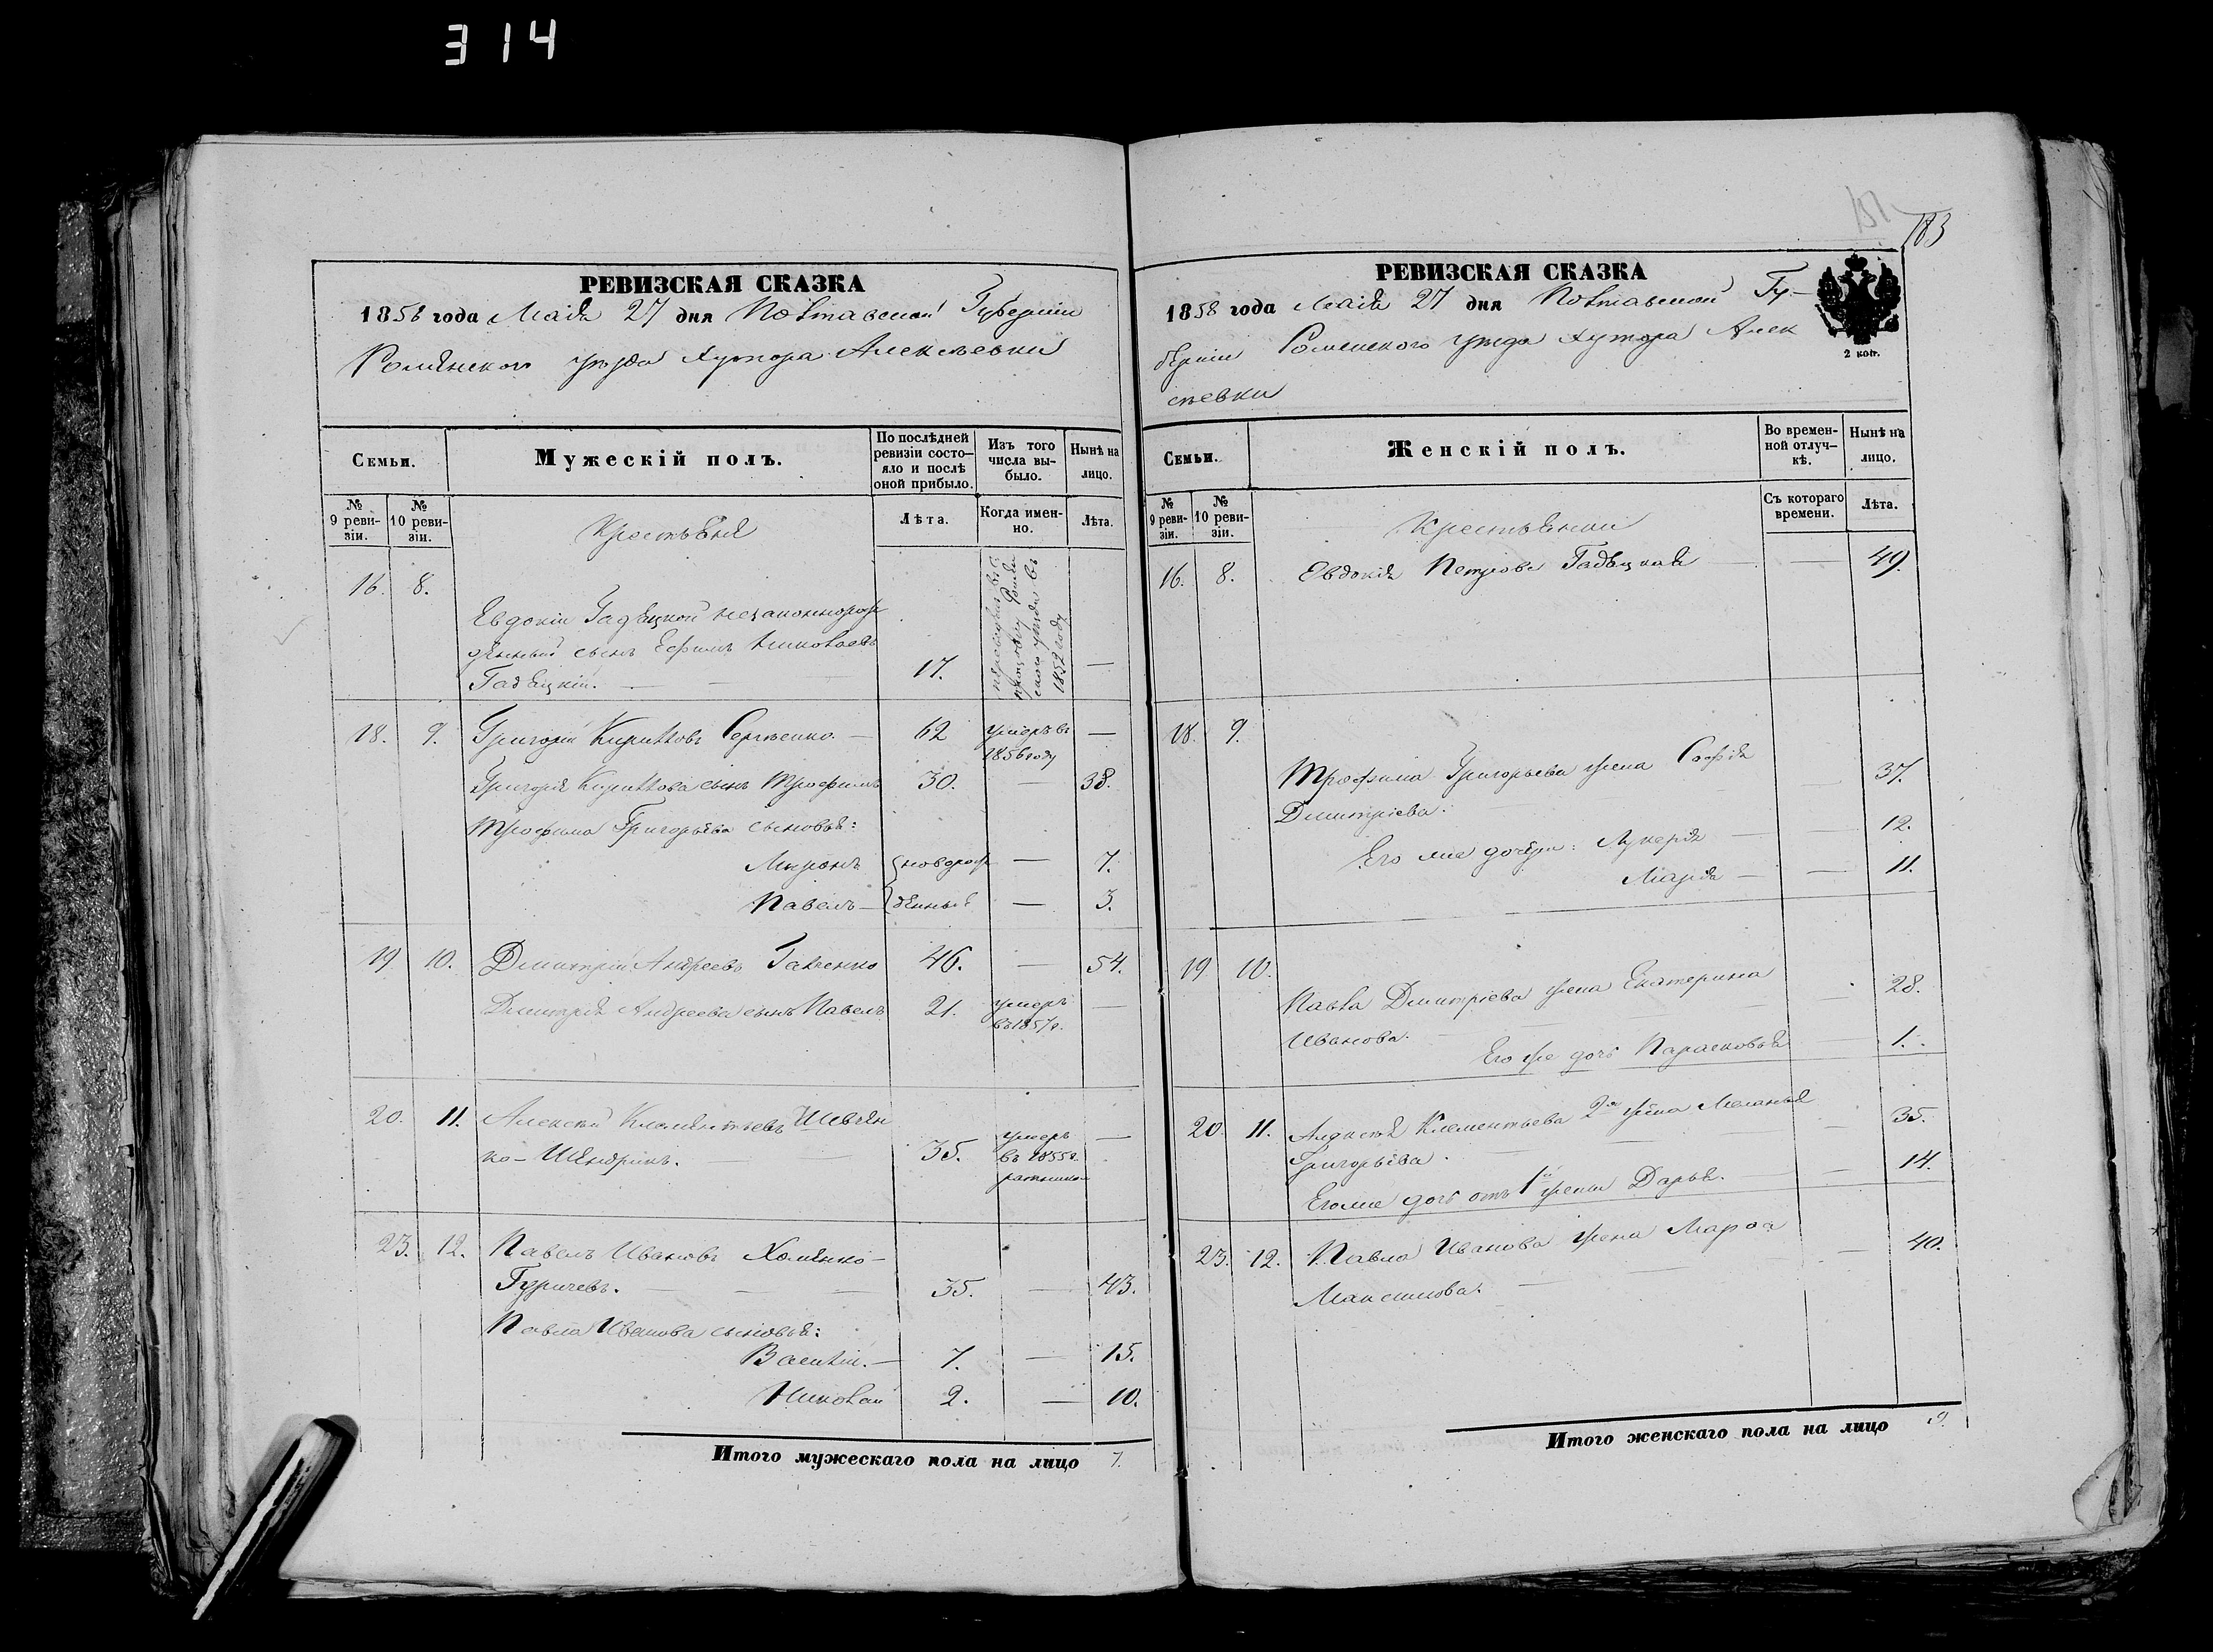 314
151
183
РЕВИЗСКАЯ СКАЗКА
1858 года Маія 27 дня Полтавской Губерніи
Роменского уѣзда Хутора Алексѣевки
Семьи.
Мужескій полъ.
По послѣдней ревизіи состо-
яло и послѣ оной прибыло.
Изъ того числа вы-
было.
Нынѣ на лицо.
№ 9 реви-
зіи.
№ 10 реви-
зіи.
Крестьяне
Лѣта.
Когда имен-
но.
Лѣта.
16. 8.
Евдокіи Гадяцкой незаконнорож
денный сынъ Ефимъ Николаевъ
Гадяцкій. — 17. —
1852 году
18. 9. Григорій Кириловъ Сергіенко. — 62 умеръ въ —
1856 году
Григорія Кирилова сынъ Трофимъ 30. — 38.
Трофима Григорьева сыновья:
Миронъ новорож — 7.
Павелъ — денные — 3.
19 10. Дмитрій Андреевъ Галченко 46. — 54.
Дмитрія Андреева сынъ Павелъ 21. умеръ —
въ 1857 г.
20. 11. Алексѣй Клементьевъ Шевчен
ко-Шендрикъ. — 35. умеръ —
въ 1855 г.
23. 12. Павелъ Ивановъ Хоменко-
Гуричевъ. — 35. — 43.
Павла Иванова сыновья:
Василій. — 7. — 15.
Николай 2. — 10.
Итого мужескаго пола на лицо 7.
РЕВИЗСКАЯ СКАЗКА
1858 года Маія 27 дня Полтавской Гу-
берніи Роменского уѣзда Хутора Алек
сѣевки
2 коп.
Семьи.
Женскій полъ.
Во времен-
ной отлуч-
кѣ.
Нынѣ на лицо.
№ 9 реви-
зіи.
№ 10 реви-
зіи.
Крестьянки
Съ котораго времени.
Лѣта.
16. 8. Евдокія Петрова Гадяцкая — 49.
18. 9.
Трофима Григорьева жена Софія
Дмитріева. — 37.
Его же дочери: Лукерія — 12.
Марія — 11.
19 10.
Павла Дмитріева жена Екатерина
Иванова. — 28.
Его же дочь Парасковья 1.
20. 11. Алексѣя Клементьева 2я жена Меланья
Григорьева. — 35.
Его же дочь отъ 1й жены Дарья. — 14.
23. 12. Павла Иванова жена Марфа
Максимова. — 40.
Итого женскаго пола на лицо 9.